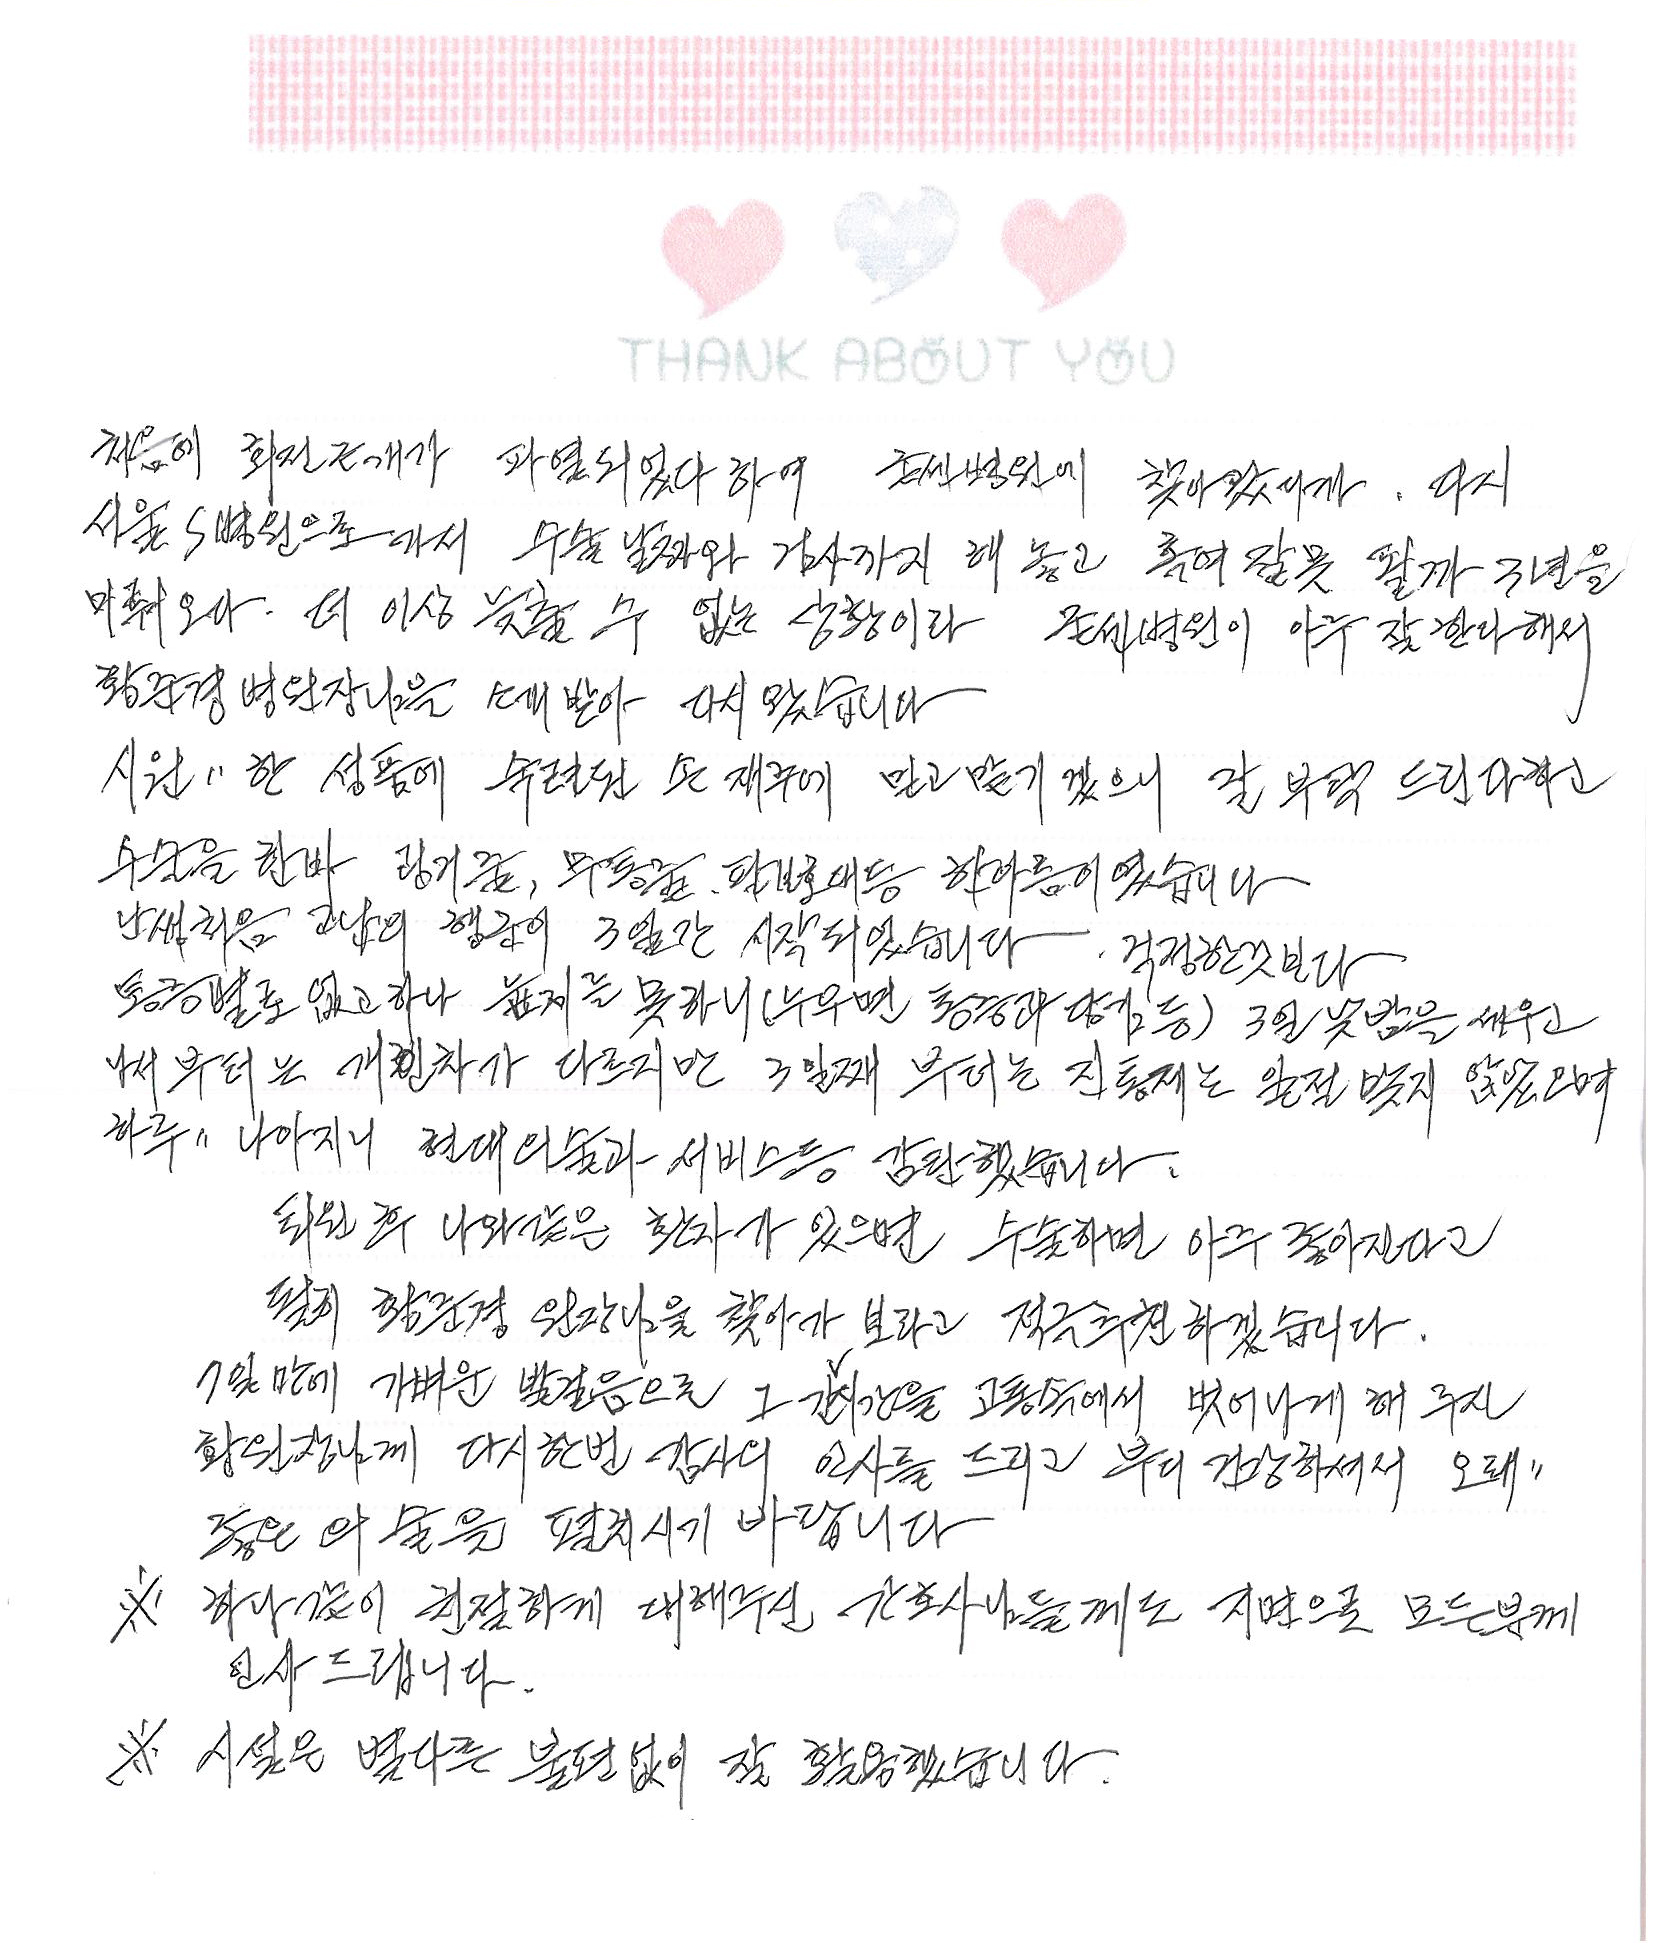 THANK ABOUT YOU
처음에 회전근개가 파열되었다하여 본병원에 찾아왔다가. 다시
서울S병원으로가서 수술날짜와 검사까지 해 놓고 혹여 잘못 될까 3년을
마춰오다. 더 이상 늦출 수 없는 상황이라 병원이 아주 잘한다해서
황준경병원장님을 소개받아 다시 왔습니다
시원〃한 성품에 숙련된 손재주에 믿고맡기겠으니 잘 부탁드린다하고
수술을 한바 링거줄, 무통줄. 팔보호대등 한아름이였습니다
난생처음 고난의 행군이 3일간 시작되었습니다. 걱정한것보다
통증별로 없고하나 눕지를 못하니(누우면 통증과 당김등) 3일낮밤을 새우고
나서부터는 개인차가 다르지만 3일째부터는 진통제는 완전 맞지 않았으며
하루〃 나아지니 현대의술과 서비스등 감탄했습니다.
퇴원 후 나와같은 환자가 있으면 수술하면 아주 좋아진다고
필히 황준경 원장님을 찾아가 보라고 적극추천하겠습니다.
7일만에 가벼운 발걸음으로 그 긴시간을 고통속에서 벗어나게 해 주신
황원장님께 다시한번 감사의 인사를 드리고 부디 건강하셔서 오래〃
좋은 의술을 펼치시기 바랍니다
※ 하나같이 친절하게 대해주신 간호사님들께도 지면으로 모든분께
인사드립니다.
※ 시설은 별다른 불편없이 잘 활용했습니다.